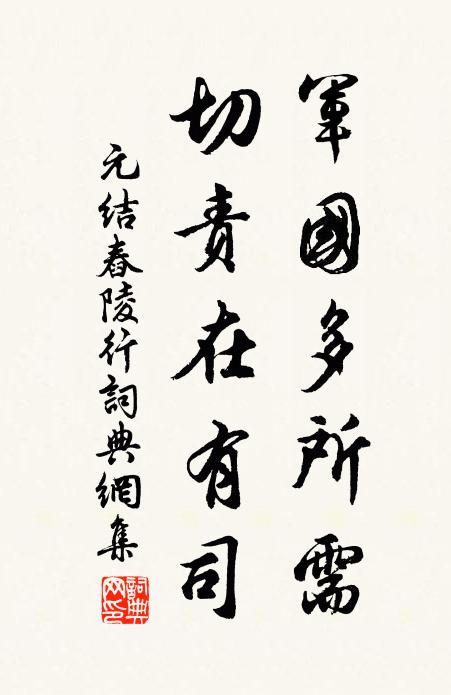 軍國多所需
切責在有司
元結舂陵行詞典網集
詞典网印